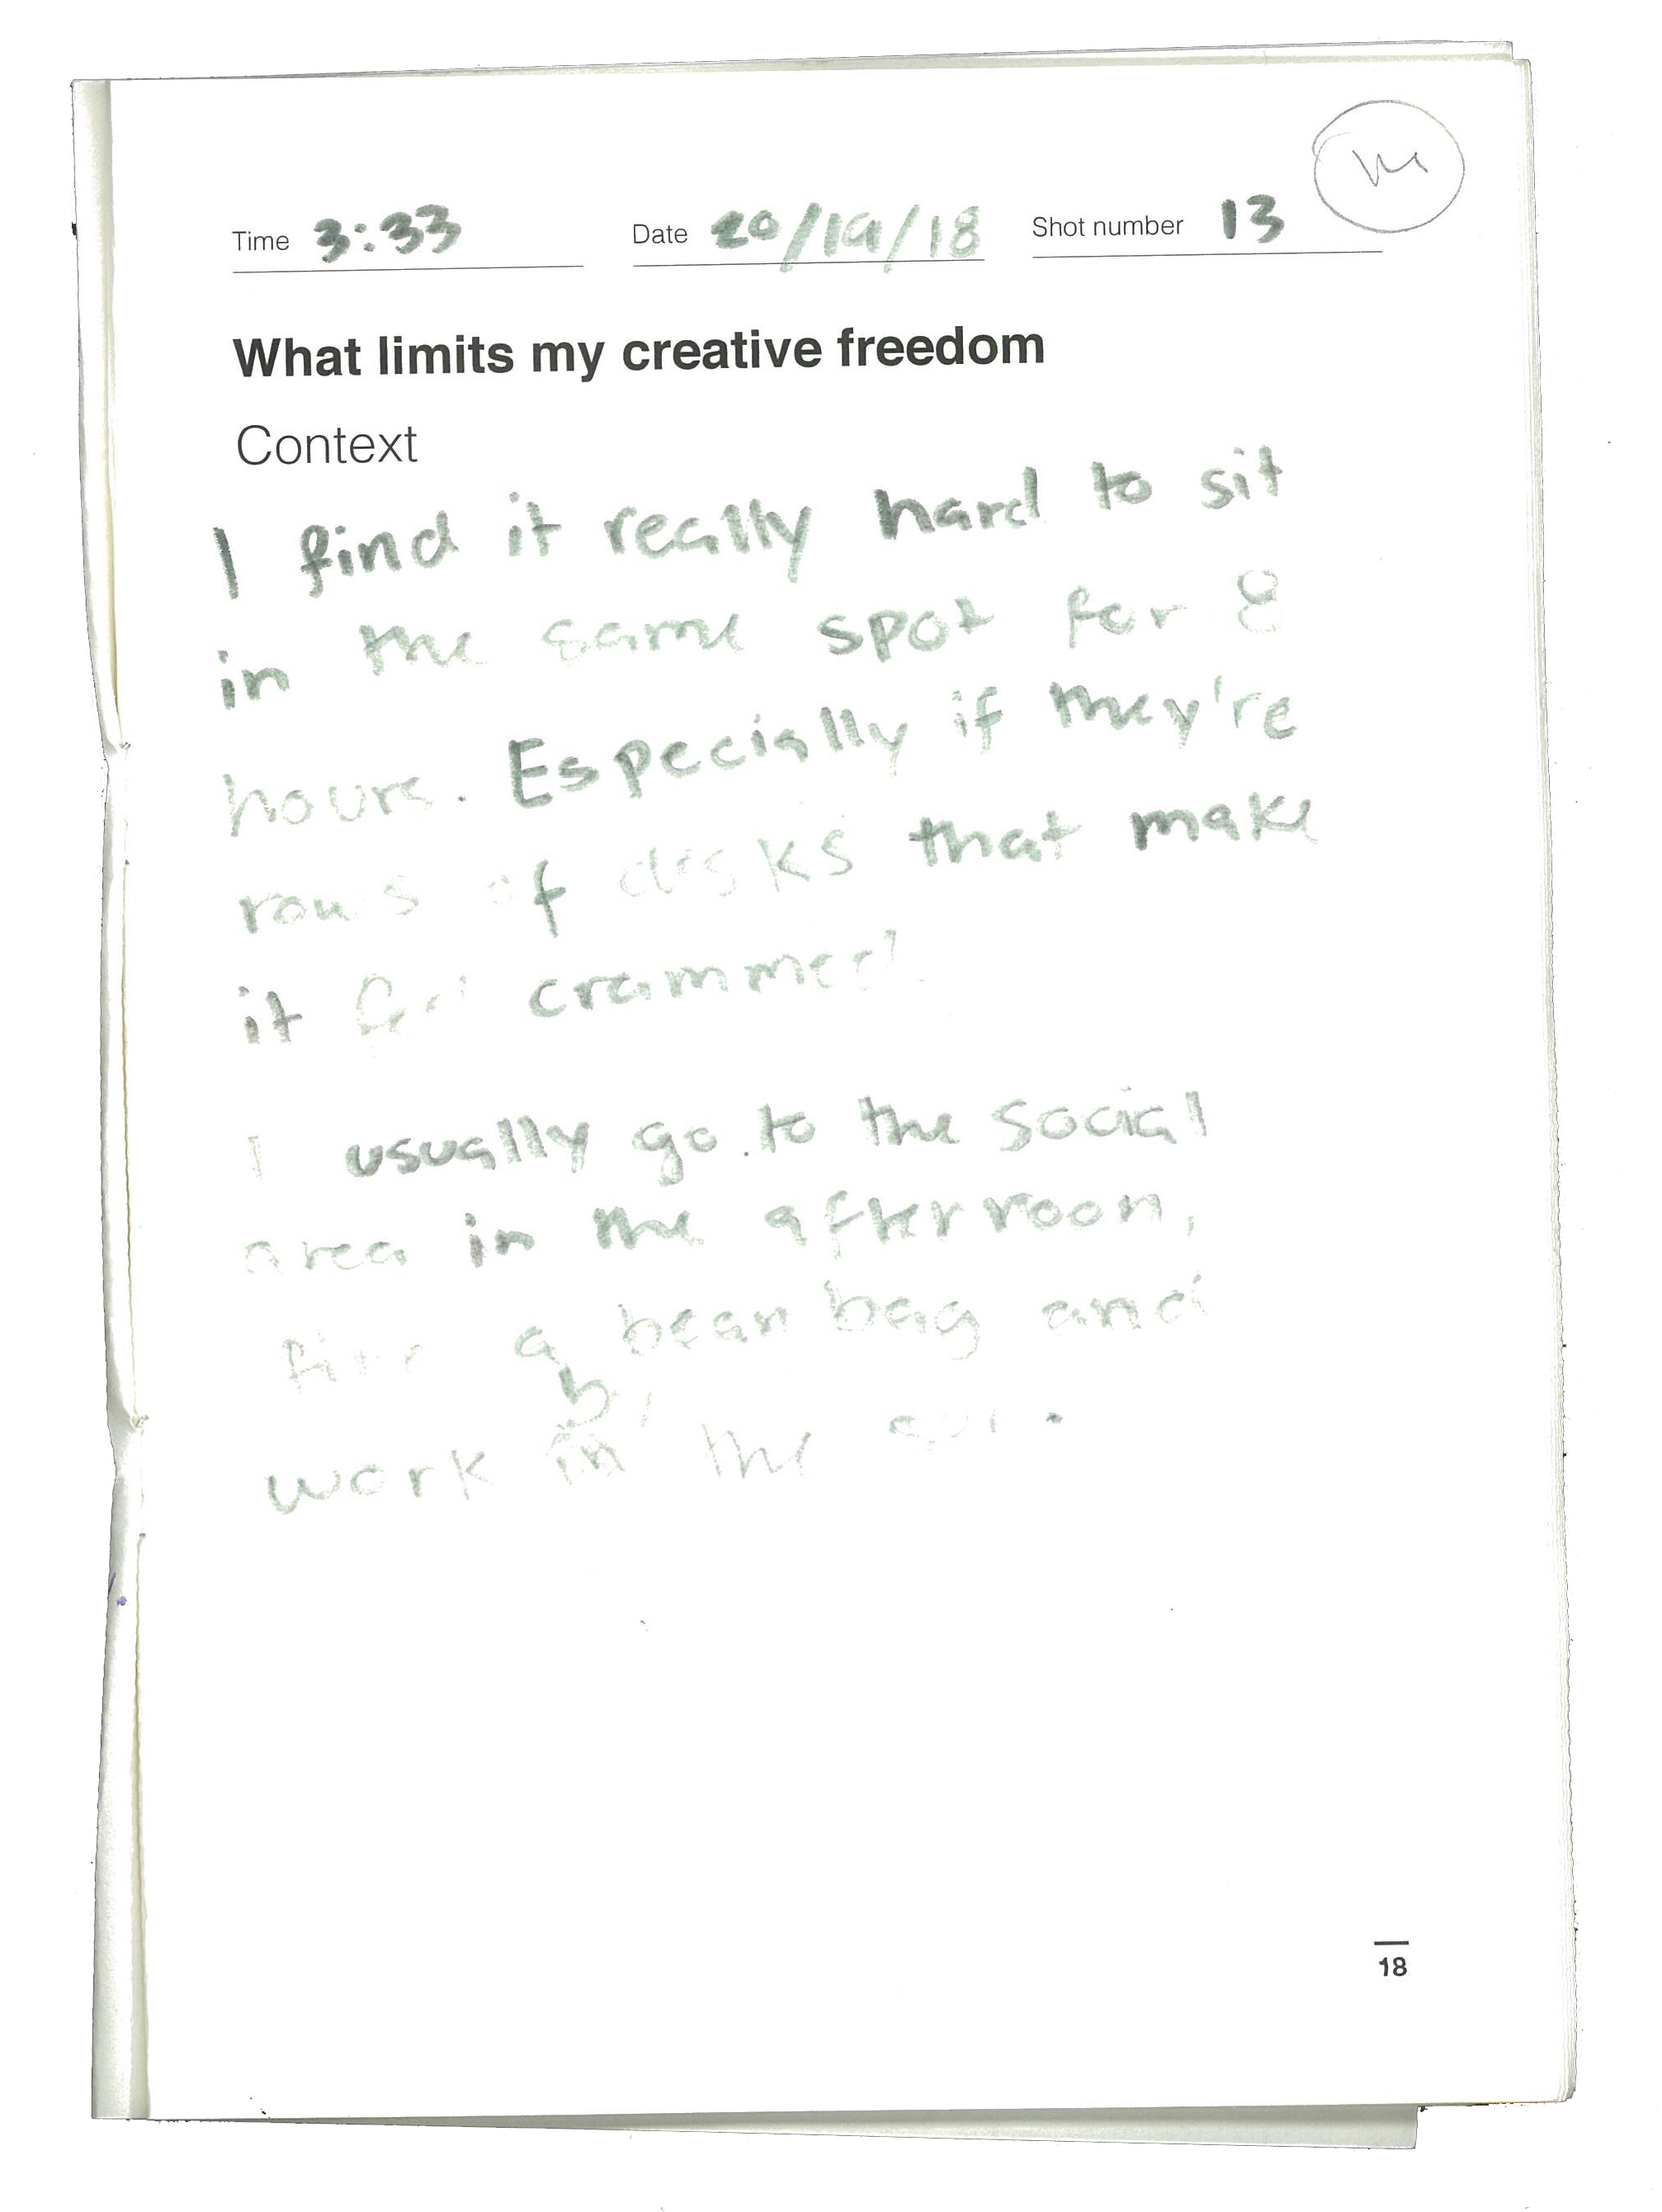 Time 3:33 Date 20/19/18 Shot number 13
What limits my creative freedom
Context
I find it really hard to sit
in the same spot for 8
hours. Especially if they're
rows of desks that make
it feel crammed
I usually go to the social
area in the afternoon,
find a bean bag and
work in the sun.
18